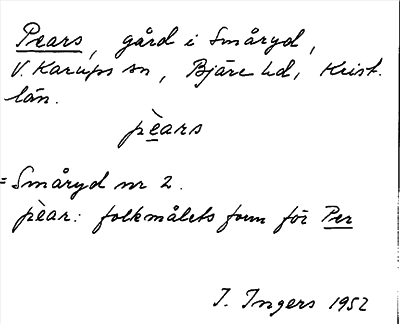 Pears, gård i Småryd,
V. Karups sn, Bjäre hd, Krist.
län.
pèars
= Småryd nr 2.
pèar: folkmålets form för Per
I. Ingers 1952